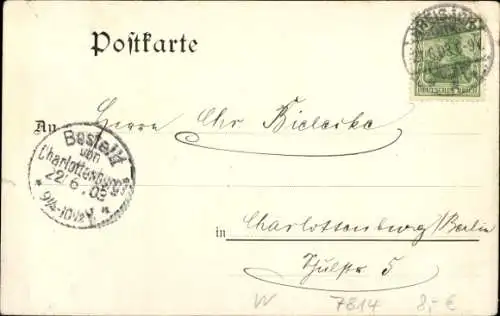 Postkarte
DEUTSCHES REICH
An Herrn Chr Bielecke
Bestellt
von
Charlottenburg
22.6.03
9¼-10½V.
in Charlottenburg/Berlin
Schulstr 5
W 7814 8,-€